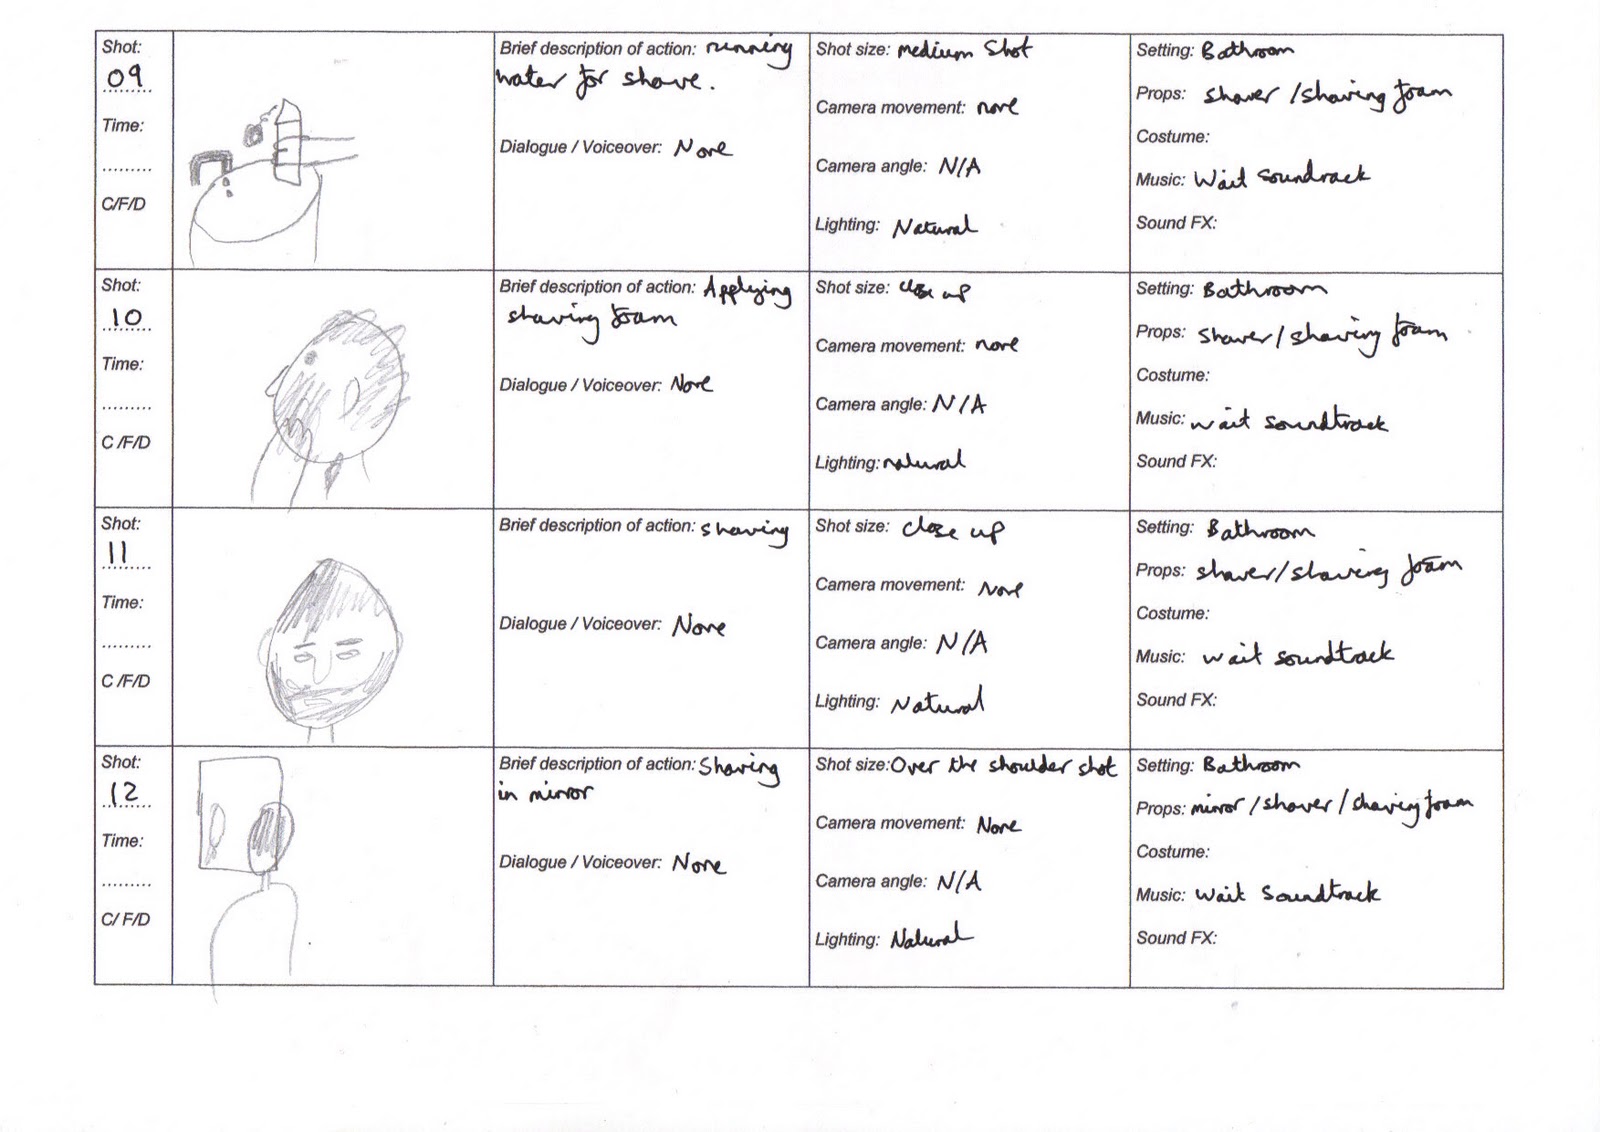 Shot:
09
Time:
.........
C/F/D
Brief description of action: running
water for shave.
Dialogue / Voiceover: None
Shot size: medium Shot
Camera movement: none
Camera angle: N/A
Lighting: Natural
Setting: Bathroom
Props: shaver / shaving foam
Costume:
Music: Wait Soundrack
Sound FX:
Shot:
10
Time:
.........
C /F/D
Brief description of action: Applying
shaving foam
Dialogue / Voiceover: None
Shot size: close up
Camera movement: none
Camera angle: N/A
Lighting: natural
Setting: Bathroom
Props: shaver / shaving foam
Costume:
Music: wait soundtrack
Sound FX:
Shot:
11
Time:
.........
C /F/D
Brief description of action: shaving
Dialogue / Voiceover: None
Shot size: close up
Camera movement: None
Camera angle: N/A
Lighting: Natural
Setting: Bathroom
Props: shaver/shaving foam
Costume:
Music: wait soundtrack
Sound FX:
Shot:
12
Time:
.........
C/ F/D
Brief description of action: Shaving
in mirror
Dialogue / Voiceover: None
Shot size: Over the shoulder shot
Camera movement: None
Camera angle: N/A
Lighting: Natural
Setting: Bathroom
Props: mirror / shaver / shaving foam
Costume:
Music: wait Soundtrack
Sound FX: